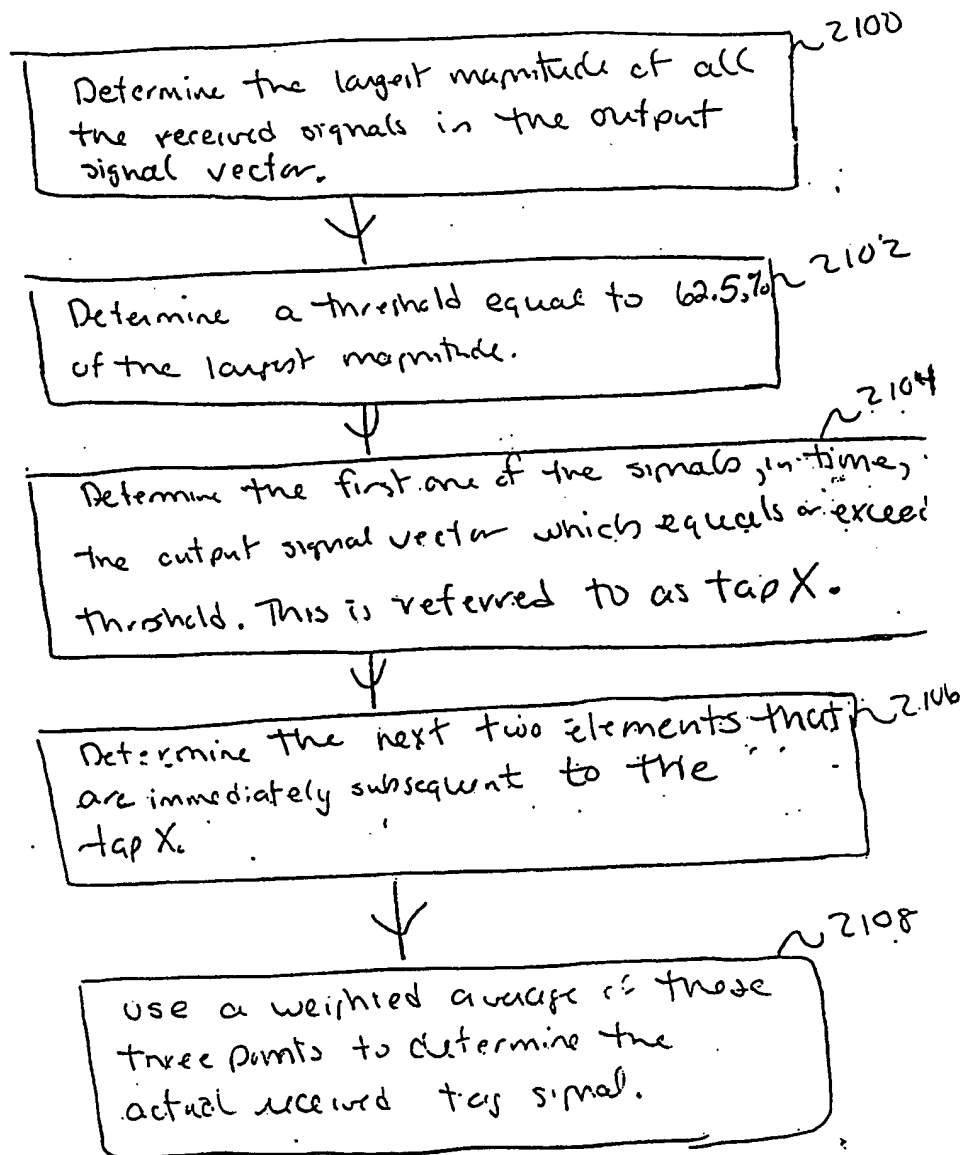 2100
Determine the largest magnitude of all
the received signals in the output
signal vector.
2102
Determine a threshold equal to 62.5%
of the largest magnitude.
2104
Determine the first one of the signals, in time,
the output signal vector which equals or exceed
threshold. This is referred to as tap X.
2106
Determine the next two elements that
are immediately subsequent to the
tap X.
2108
use a weighted average of these
three points to determine the
actual received tag signal.